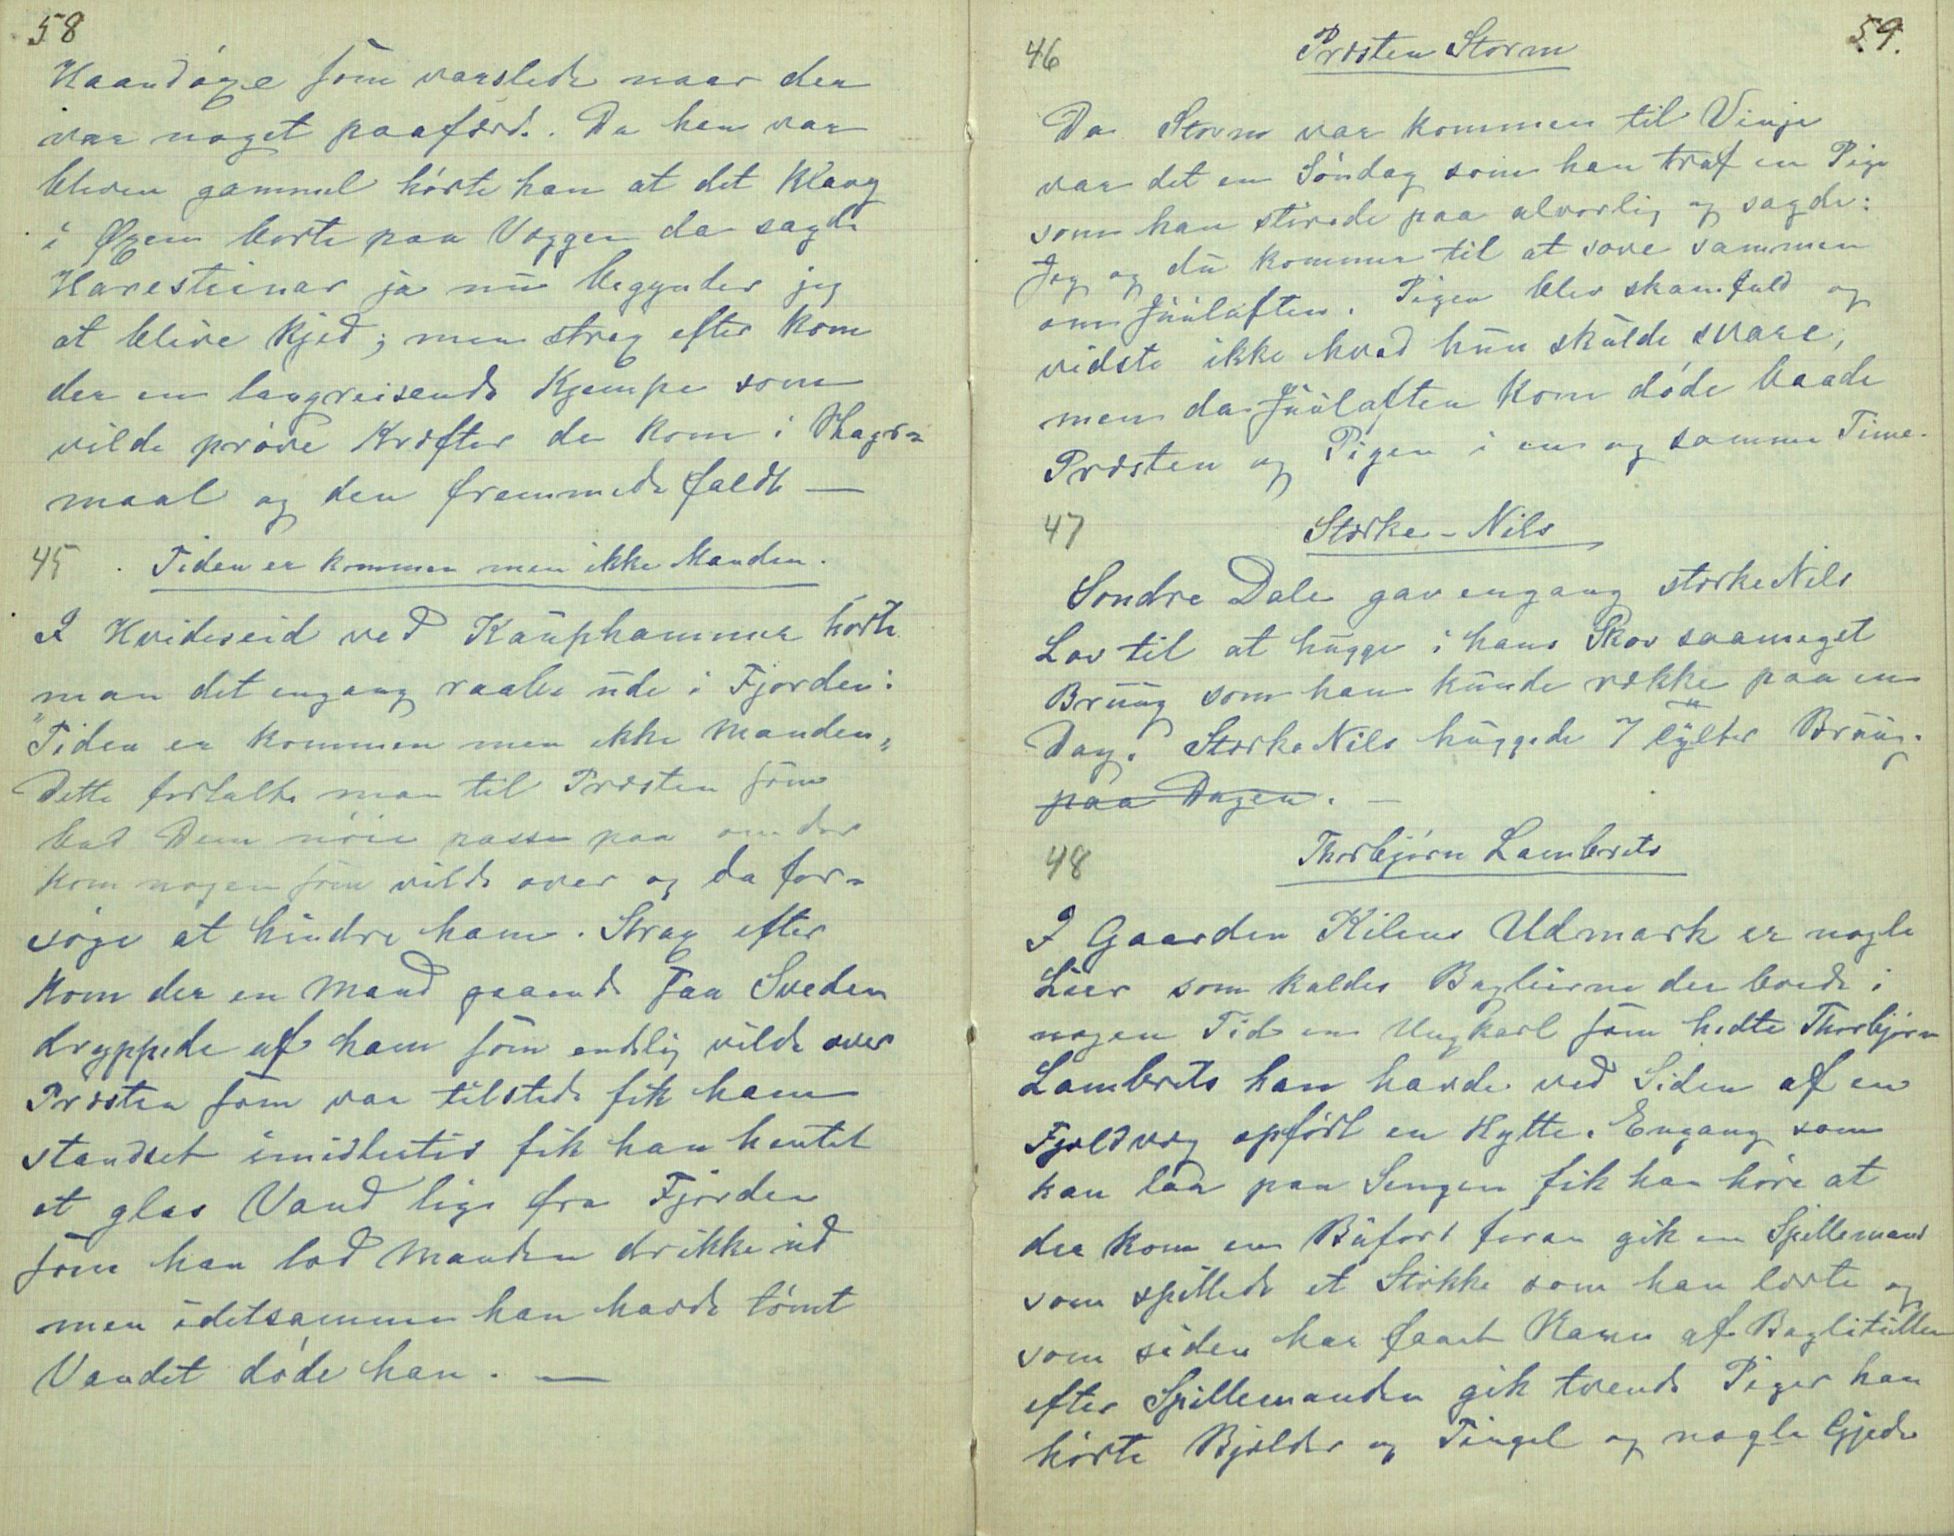 58
Haandøxe som varslede naar der
var noget paafærd. Da han var
bleven gammel hørte han at det klang
i Øxen borte paa Væggen da sagde
Haresteinar ja nu begynder jeg
at blive kjed; men strax efter kom
der en langreisende Kjempe som
vilde prøve Kræfter de kom i Slags-
maal og den fremmede faldt —
45 . Tiden er kommen men ikke Manden.
I Hvideseid ved Kauphammer hørte
man det engang raabes ude i Fjorden:
"Tiden er kommen men ikke Manden„
Dette fortalte man til Præsten som
bad Dem nøie passe paa om der
kom nogen som vilde over og da for-
søge at hindre ham. Strax efter
kom der en Mand gaaende saa Sveden
dryppede af ham som endelig vilde over
Præsten som var tilstede fik ham
standset imidlertid fik han hentet
et glas Vand lige fra Fjorden
som han lod Manden drikke ud
men i detsamme han havde tømt
Vandet døde han. —
59.
46 Præsten Storm
Da Storm var kommen til Vinje
var det en Søndag som han traf en Pige
som han stirede paa alvorlig og sagde:
Jeg og du kommer til at sove sammen
om Juulaften. Pigen blev skamfuld og
vidste ikke hvad hun skulde svare,
men da Juulaften kom døde baade
Præsten og Pigen i en og samme Time.
47 Stærke-Nils
Sondre Dale gav engang stærke Nils
Lov til at hugge i hans Skov saameget
Bruug som han kunde række paa en
Dag. Stærke Nils huggede 7 tylter Bruug.
paa Dagen. —
48 Thorbjørn Lambrets
I Gaarden Kilens Udmark er nogle
Lier som kaldes Baglierne der boede i
nogen Tid en Ungkarl som hedte Thorbjørn
Lambrets han havde ved Siden af en
Fjeldvæg opført en Hytte. Engang som
han laa paa Sengen fik han høre at
der kom en Buførd foran gik en Spillemand
som spillede et Stykke som han lærte og
som siden har faaet Navn af Baglitullen
efter Spillemanden gik tvende Piger han
hørte Bjelder og Tingel og nogle Gjeder